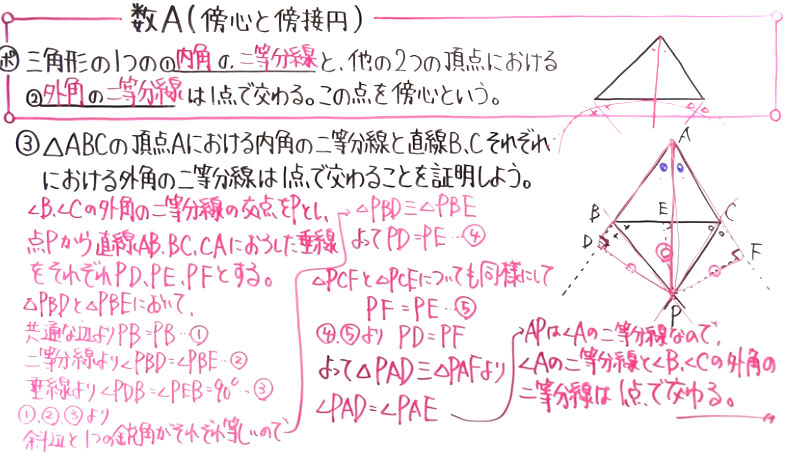 数A(傍心と傍接円)
ポ 三角形の1つの①内角の二等分線と、他の2つの頂点における
②外角の二等分線は1点で交わる。この点を傍心という。
③ △ABCの頂点Aにおける内角の二等分線と直線B、Cそれぞれ
における外角の二等分線は1点で交わることを証明しよう。
∠B、∠Cの外角の二等分線の交点をPとし、
点Pから直線AB、BC、CAにおろした垂線
をそれぞれPD、PE、PFとする。
△PBDと△PBEにおいて、
共通な辺よりPB=PB…①
二等分線より∠PBD=∠PBE…②
垂線より∠PDB=∠PEB=90°…③
①、②、③より
斜辺と1つの鋭角がそれぞれ等しいので
△PBD≡△PBE
よってPD=PE…④
△PCFと△PCEについても同様にして
PF=PE…⑤
④、⑤より PD=PF
よって△PAD≡△PAFより
∠PAD=∠PAE
APは∠Aの二等分線なので、
∠Aの二等分線と∠B、∠Cの外角の
二等分線は1点で交わる。
A
B
E
C
D
F
P